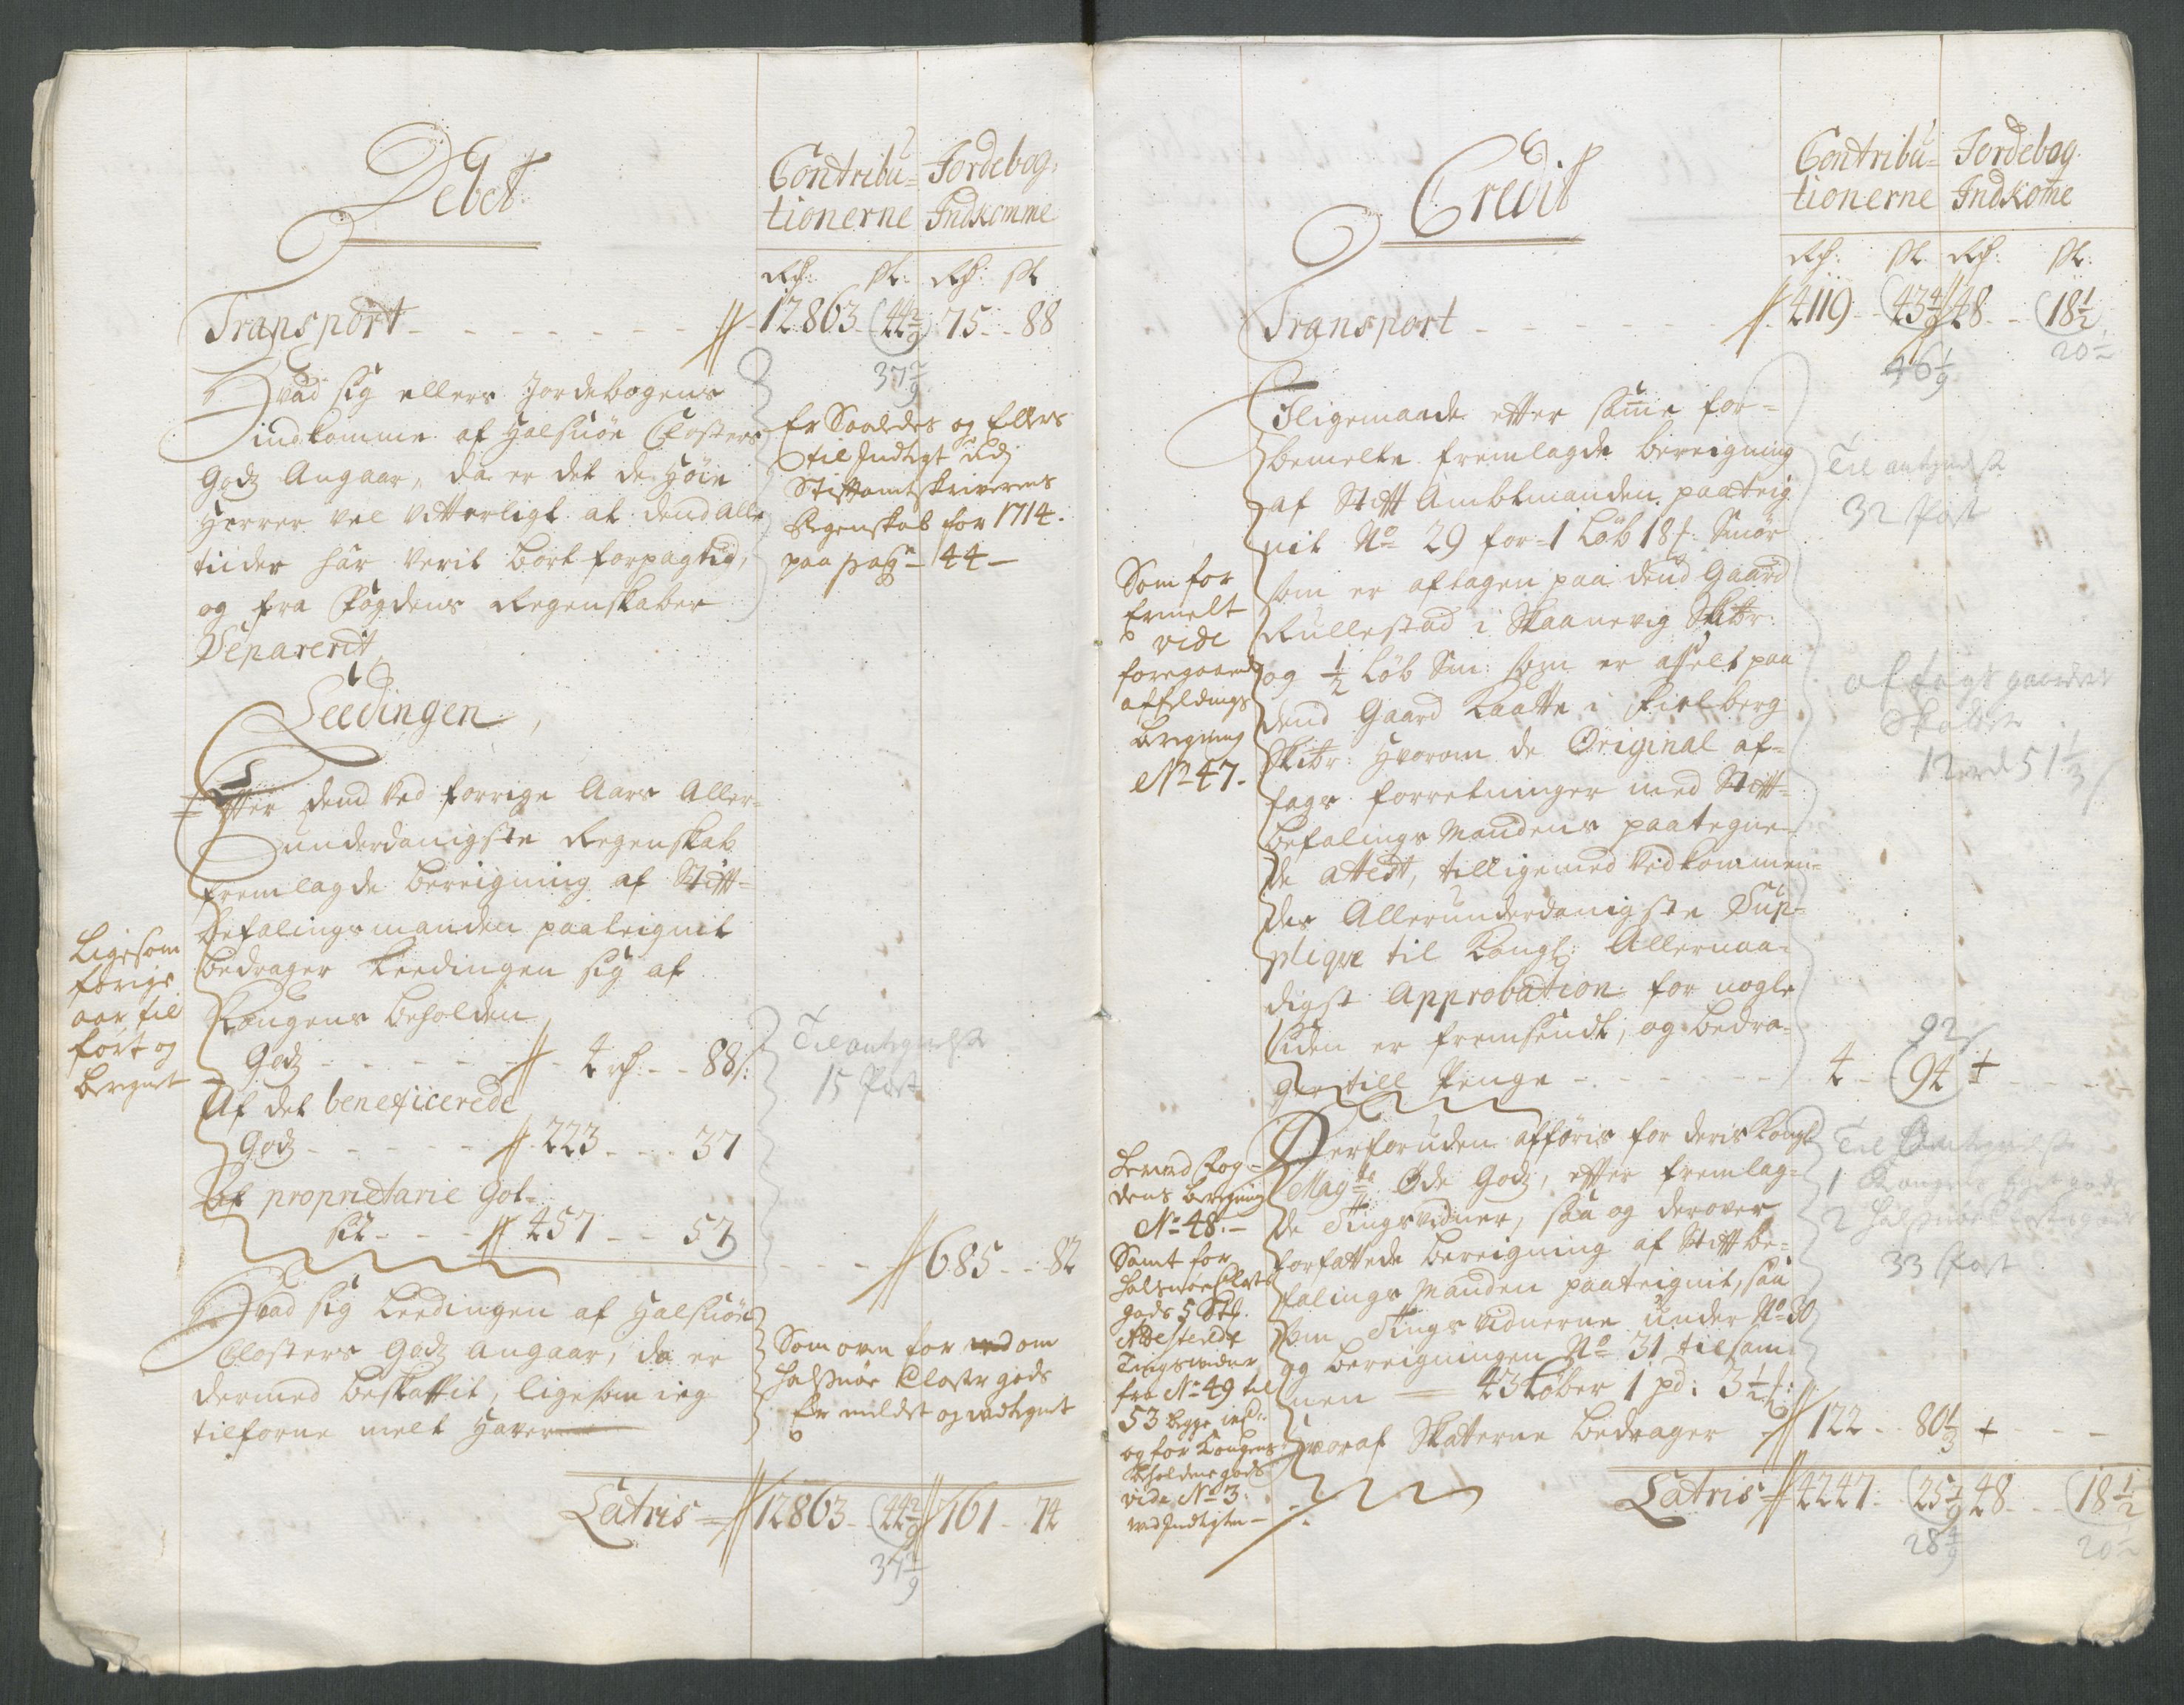 Debet
Contribu= Jordebog.
tionerne Indkomme
Rd: sk: Rd: sk
Transport - - - - 12863 - 44 2/9 75 - - 88
37 2/9
Hvad sig ellers Jordebogens
indkomme af Halsnöe Closters
Godz Angaar, da er det de Höie
Herrer vel vitterligt at dend alle
tiider har verit bort forpagtid,
og fra Fogdens Regenskaber
Separerit,
Er Saaledes og Ellers
til Indtegt udj
Stiftamtskriverens
Regenskab for 1714.
paa pag: 44 -
Leedingen,
Efter dend ved forrige Aars Aller=
underdanigste Regenskab
fremlagde bereigning af Stift=
befalingsmanden paateignit
bedrager Leedingen sig af
Kongens beholden
Godz - - - - 4 rd: - - 88 s:
Af det beneficerede
Godz - - - - 223 - - - 37
Af proprietarie God-
sit - - - 457 - - 57
- - - 685 - - 82
Ligesom
forige
aar til
fört og
beregnet
Til antegnelse
15 Post
Hvad sig Leedingen af Halsnöe
Closters Godz Angaar, da er
dermed beskaffit, ligesom ieg
tilforne melt haver
Som oven for om
Halsnöe Closter gods
Er meldet og antegnet
Latris = 12863 - 44 2/9 761 - 74
37 2/9
Credit
Contribu= Jordebog.
tionerne Indkome
Rd: sk Rd: sk:
Transport - - - - 4119 - 43 4/9 48 - - 18 1/2
46 1/9 20 -
Iligemaade efter same for=
bemelte fremlagde bereigning
af Stift Ambtmanden paateig
nit No 29 for 1 Löb 18 Smör
som er aftagen paa dend Gaard
Rullestad i Skaanevig Skibr:
og 1/2 Löb Sm: som er affelt paa
dend Gaard Kaatte i Fielberg
Skibr: Hvorom de Original af=
fags forretninger med Stift=
befalings Mandens paategne=
de attest, tilligemed Vedkommen=
des Allerunderdanigste Sup=
plique til Kongl: Allernaa=
digst Approbation for nogle
tiden er fremsendt, og bedra=
ger till Penge - - - - - 4 - 94
92
Som for
Ermelt
vide
foregaaende
affeldings
bregning
No 47.
Til antegnelse
32 Post
affags gaardene
Skatter
12 rd 51 1/3
Derforuden afföris for deris Kongl
Mayts Öde Godz, efter fremlag=
de Tingsvidner, saa og derover
forfattede bereigning af Stiftbe=
falings Manden paateignit, saa
som Tingsvidnerne under No 30
og bereigningen No 31 tilsam
men = 43 Löber 1 pd: 3 1/2
hvoraf Skatterne bedrager 122 - - 80 1/3
Levered Fog=
dens beregning
No 48. -
Samt for
Halsnöe Closter
gods 5 St:
Attesterede
Tingsvidner
fra No 49 til
53 begge incl:
og for Kongens
beholdene gods
vide No 3:
ved Indtegten -
33 Post
Latris 4247 - 25 7/9 48 - - 18 1/2
28 4/9 20 -